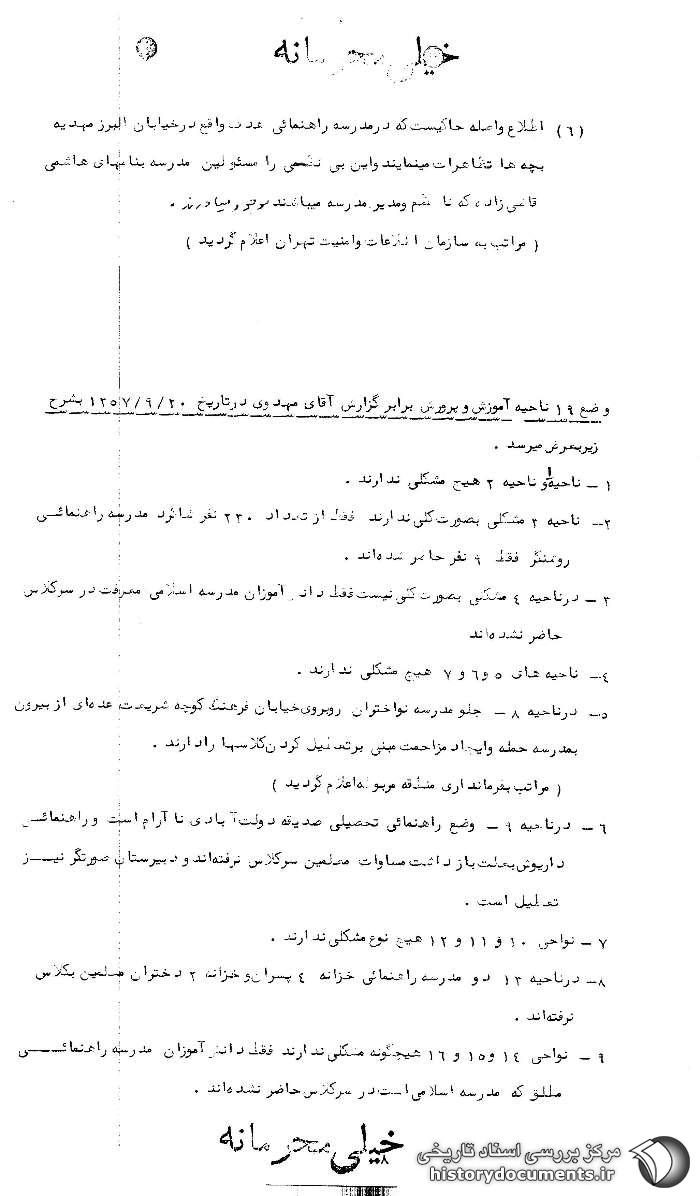 خیلی محرمانه
(٦) اطلاع واصله حاکیست که در مدرسه راهنمائی عدت واقع در خیابان البرز مهدیه
بچه ها تظاهرات مینمایند واین بی نظمی را مسئولین مدرسه بنامهای هاشمی
قاضی زاده که ناظم ومدیر مدرسه میباشند بوجود میاورند .
( مراتب به سازمان اطلاعات وامنیت تهران اعلام گردید )
وضع ١٩ ناحیه آموزش و پرورش برابر گزارش آقای مهدوی درتاریخ ١٣٥٧/٩/٢٠ بشرح
زیربعرض میرسد .
١ – ناحیه ١ و ناحیه ٢ هیچ مشکلی ندارند .
٢– ناحیه ٣ مشکلی بصورت کلی ندارند فقط از تعداد ٢٣٠ نفر شاگرد مدرسه راهنمائی
روشنگر فقط ٩ نفر حاضر شده‌اند .
٣ – درناحیه ٤ مشکلی بصورت کلی نیست فقط دانش آموزان مدرسه اسلامی معرفت در سرکلاس
حاضر نشده‌اند
٤– ناحیه های ٥ و ٦ و ٧ هیچ مشکلی ندارند .
٥– درناحیه ٨ – جلو مدرسه نواختران روبروی خیابان فرهنگ کوچه شریعت عده‌ای از بیرون
بمدرسه حمله وایجاد مزاحمت مبنی برتعطیل کردن کلاسها را دارند .
( مراتب بفرمانداری منطقه مربوطه اعلام گردید )
٦ – درناحیه ٩ – وضع راهنمائی تحصیلی صدیقه دولت آبادی نا آرام است و راهنمائی
داریوش بعلت بازداشت مساوات معلمین سرکلاس نرفته‌اند و دبیرستان صورتگر نیز
تعطیل است .
٧ – نواحی ١٠ و ١١ و ١٢ هیچ نوع مشکلی ندارند .
٨– درناحیه ١٣ دو مدرسه راهنمائی خزانه ٤ پسران و خزانه ٢ دختران معلمین بکلاس
نرفته‌اند .
٩ – نواحی ١٤ و ١٥ و ١٦ هیچگونه مشکلی ندارند فقط دانش آموزان مدرسه راهنمائی
مطلق که مدرسه اسلامی است در سرکلاس حاضر نشده‌اند .
خیلی محرمانه
٨
مرکز بررسی اسناد تاریخی
historydocuments.ir